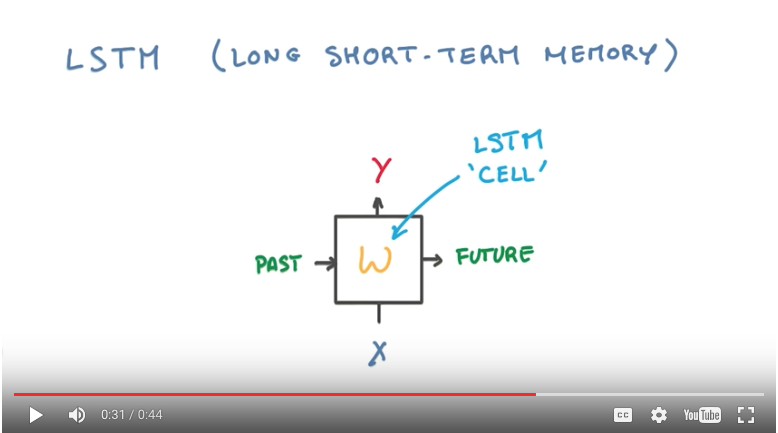 LSTM (LONG SHORT-TERM MEMORY)
LSTM
'CELL'
Y
PAST W FUTURE
X
0:31 / 0:44
CC
YouTube